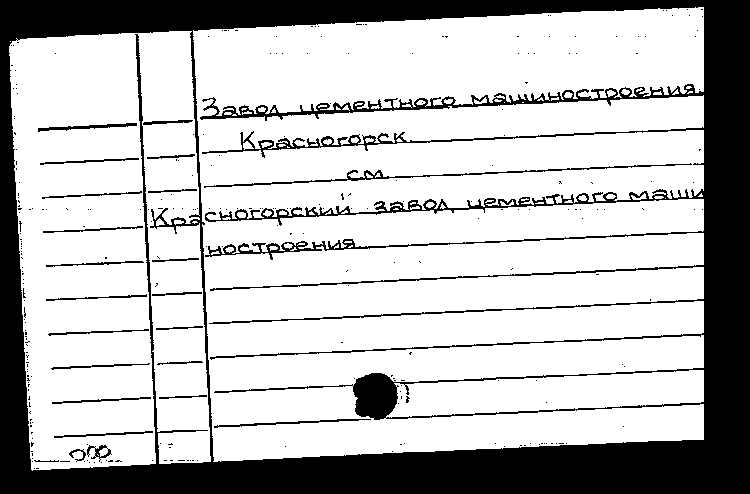 Завод цементного машиностроения.
Красногорск.
см.
Красногорский завод цементного маши
ностроения.